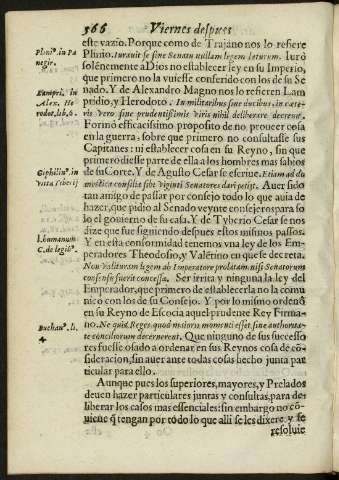 366 Viernes despues
este vazio. Porque como de Trajano nos lo refiere
Plinio. Iurauit se sine Senatu nullam legem laturum. Iurò
solēnemente a Dios no establecer ley en su Imperio,
que primero no la vuiesse conferido con los de su Se
nado. Y de Alexandro Magno nos lo refieren Lam
pridio, y Herodoto. In militaribus siue ducibus, in cæte-
ris vero siue prudentissimis viris nihil deliberare decreuit.
Formò efficacissimo proposito de no proueer cosa
en la guerra: sobre que primero no consultasse sus
Capitanes: ni establecer cosa en su Reyno, sin que
primero diesse parte de ella a los hombres mas sabios
de su Corte. Y de Agusto Cesar se escriue. Etiam ad do
mestica consilia sibi Viginti Senatores dari petijt. Auer sido
tan amigo de passar por consejo todo lo que auia de
hazer, que pidio al Senado veynte consejeros para so
lo el gouierno de su casa. Y de Tyberio Cesar se nos
dize que fue siguiendo despues estos mismos passos.
Y en esta conformidad tenemos vna ley de los Em-
peradores Theodosio, y Valētino en que se decreta.
Non Valituram legem ab Imperatore prolatam, nisi Senatorum
consensu fuerit concessa. Ser irrita y ninguna la ley del
Emperador, que primero de establecerla no la comu
nico con los de su Consejo. Y por lo mismo ordenò
en su Reyno de Escocia aquel prudente Rey Firma-
no. Ne quid Reges, quod maioris momenti esset, sine authorita-
te conciliorum decernerent. Que ninguno de sus successo
res fuesse osado a ordenar en sus Reynos cosa de cō
sideracion, sin auer ante todas cosas hecho junta par
ticular para ello.
Aunque pues los superiores, mayores, y Prelados
deuen hazer particulares juntas y consultas, para de-
liberar los casos mas essenciales: sin embargo no cō-
uiene q̃ tengan por todo lo que alli se les dixere, y se
resoluie
Plini⁹. in Pa
negir.
Lampri. in
Alex. He
rodot, lib. 6.
Ciphilin⁹. in
vita Tiberij
l. humanum
C. de legib⁹.
Buchan⁹. li.
4